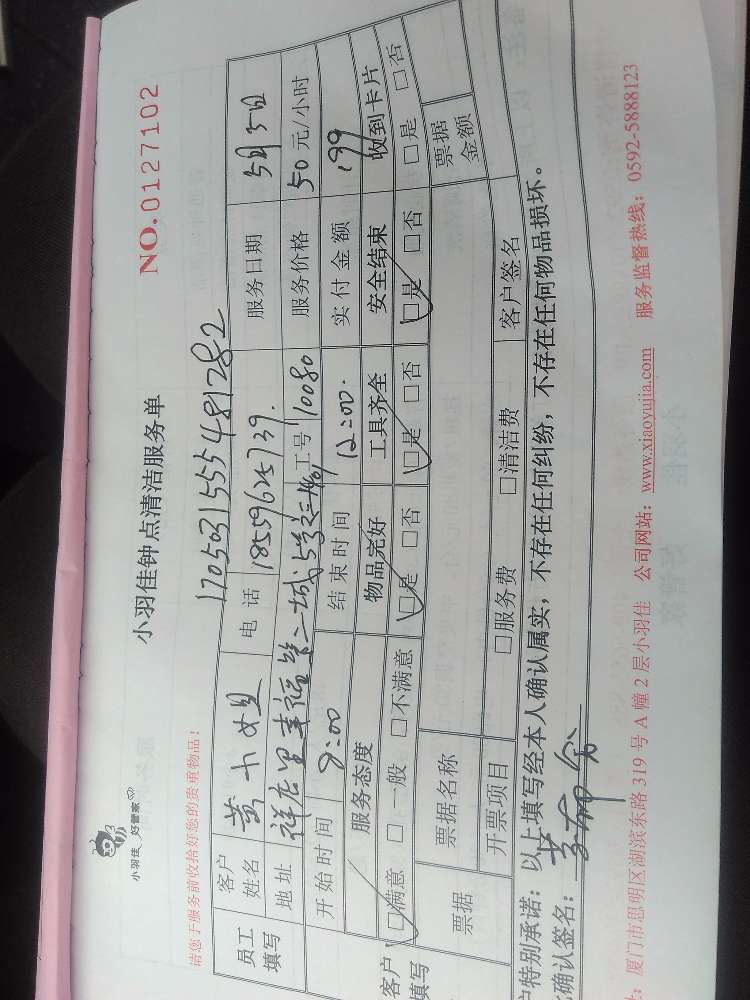 小羽佳 好管家
小羽佳钟点清洁服务单
NO.0127102
请您于服务前收拾好您的贵重物品!
170503155548 1282
员工填写 客户姓名 黄小姐 电话 18559625739. 服务日期 5月5日
地址 祥店里幸福第二城 工号 10080 服务价格 50元/小时
开始时间 9:00 结束时间 12:00. 实付金额 199
客户填写 服务态度 物品完好 工具齐全 安全结束 收到卡片
□满意 □一般 □不满意 □是 □否 □是 □否 □是 □否 □是 □否
票据 票据名称 票据金额
开票项目 □服务费 □清洁费 客户签名
户特别承诺:以上填写经本人确认属实,不存在任何纠纷,不存在任何物品损坏。
确认签名:
:厦门市思明区湖滨东路 319 号 A 幢 2 层小羽佳 公司网站:www.xiaoyujia.com 服务监督热线:0592-5888123